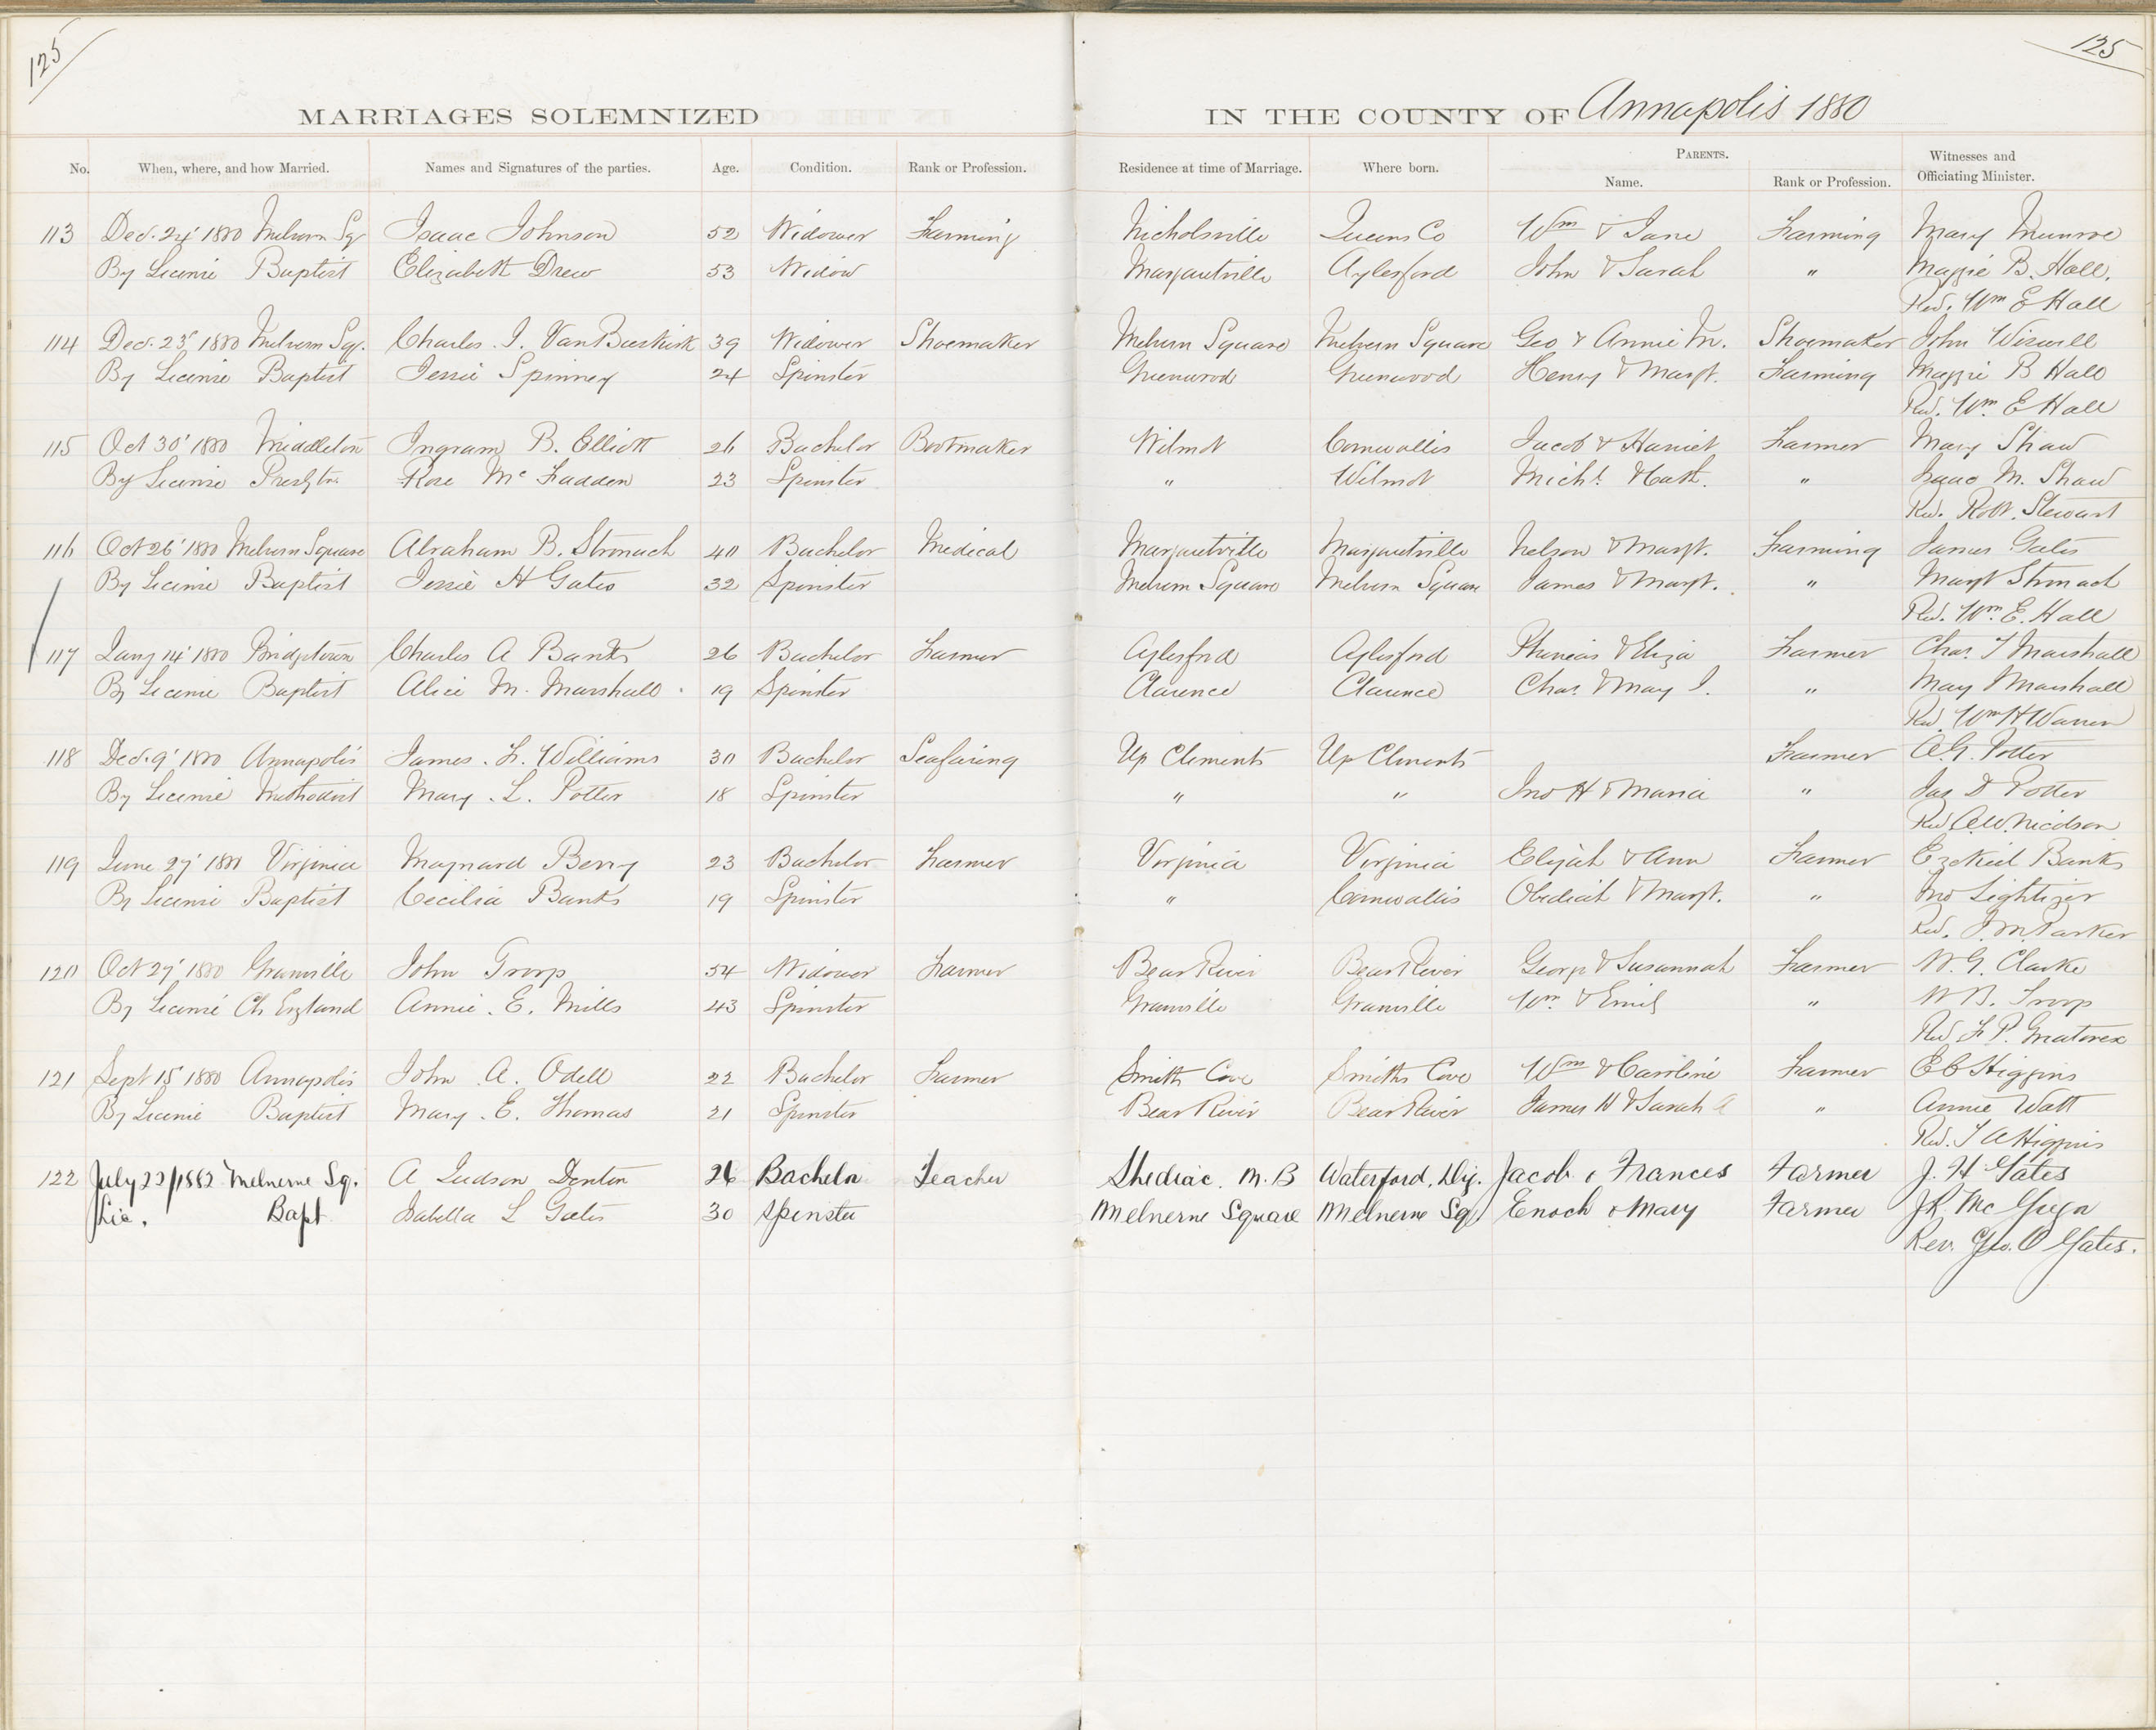 125
125
MARRIAGES SOLEMNIZED IN THE COUNTY OF Annapolis 1880
No. When, where, and how Married. Names and Signatures of the parties. Age. Condition. Rank or Profession. Residence at time of Marriage. Where born. PARENTS. Name. Rank or Profession. Witnesses and Officiating Minister.
113 Dec. 24' 1880 Melvern Sq Isaac Johnson 52 Widower Farming Nicholsville Queens Co Wm & Jane Farming Mary Munroe
By License Baptist Elizabeth Drew 53 Widow Margaretville Aylesford John & Sarah " Maggie B. Hall.
Rev. Wm E Hall
114 Dec. 23' 1880 Melvern Sqr. Charles I. VanBuskirk 39 Widower Shoemaker Melvern Square Melvern Square Geo & Annie M. Shoemaker John Wiswell
By License Baptist Jessie Spinney 24 Spinster Greenwood Greenwood Henry & Margt. Farming Maggie B Hall
Rev. Wm. E Hall
115 Oct 30' 1880 Middleton Ingram B. Elliott 26 Bachelor Bootmaker Wilmot Cornwallis Jacob & Harriet Farmer Mary Shaw
By License Presbytn. Rose McFadden 23 Spinster " Wilmot Michl. & Cath. " Isaac M. Shaw
Rev. Robt. Stewart
116 Oct 26' 1880 Melvern Square Abraham B. Stronach 40 Bachelor Medical Margaretville Margaretville Nelson & Margt. Farming James Gates
By License Baptist Jessie H Gates 32 Spinster Melvern Square Melvern Square James & Margt. " Margt Stronach
Rev. Wm. E. Hall
117 Jany 14' 1880 Bridgetown Charles A Banks 26 Bachelor Farmer Aylesford Aylesford Phineas & Eliza Farmer Chas. T Marshall
By License Baptist Alice M. Marshall 19 Spinster Clarence Clarence Chas. & May I. " May I Marshall
Rev. Wm H Warren
118 Dec. 9' 1880 Annapolis James. F. Williams 30 Bachelor Seafaring Up Clements Up Clements Farmer A.G. Potter
By License Methodist Mary. L. Potter 18 Spinster " " Jno H & Maria " Jas D Potter
Rev A.W. Nicolson
119 June 27' 1880 Virginia Maynard Berry 23 Bachelor Farmer Virginia Virginia Elijah & Ann Farmer Ezekiel Banks
By License Baptist Cecilia Banks 19 Spinster " Cornwallis Obediah & Margt. " Jno Lightizer
Rev. J. M. Parker
120 Oct 27' 1880 Granville John Troop 54 Widower Farmer Bear River Bear River George & Susannah Farmer W. G. Clarke
By License Ch England Annie. E. Mills 43 Spinster Granville Granville Wm. & Emily " W B. Troop
Rev F. P. Greatorex
121 Sept 15' 1880 Annapolis John A. Odell 22 Bachelor Farmer Smith Cove Smiths Cove Wm & Caroline Farmer E C Higgins
By License Baptist Mary. E. Thomas 21 Spinster Bear River Bear River James W & Sarah A " Annie Watt
Rev. T A Higgins
122 July 22/1882 Melnerne Sq. A Judson Denton 26 Bachelor Teacher Shediac. N.B Waterford, Dig. Jacob & Frances Farmer J. H Gates
Lic. Bapt Isabella L Gates 30 Spinster Melnerne Square Melnerne Sq Enoch & Mary Farmer J R. McGregor
Rev. Geo. O Gates.